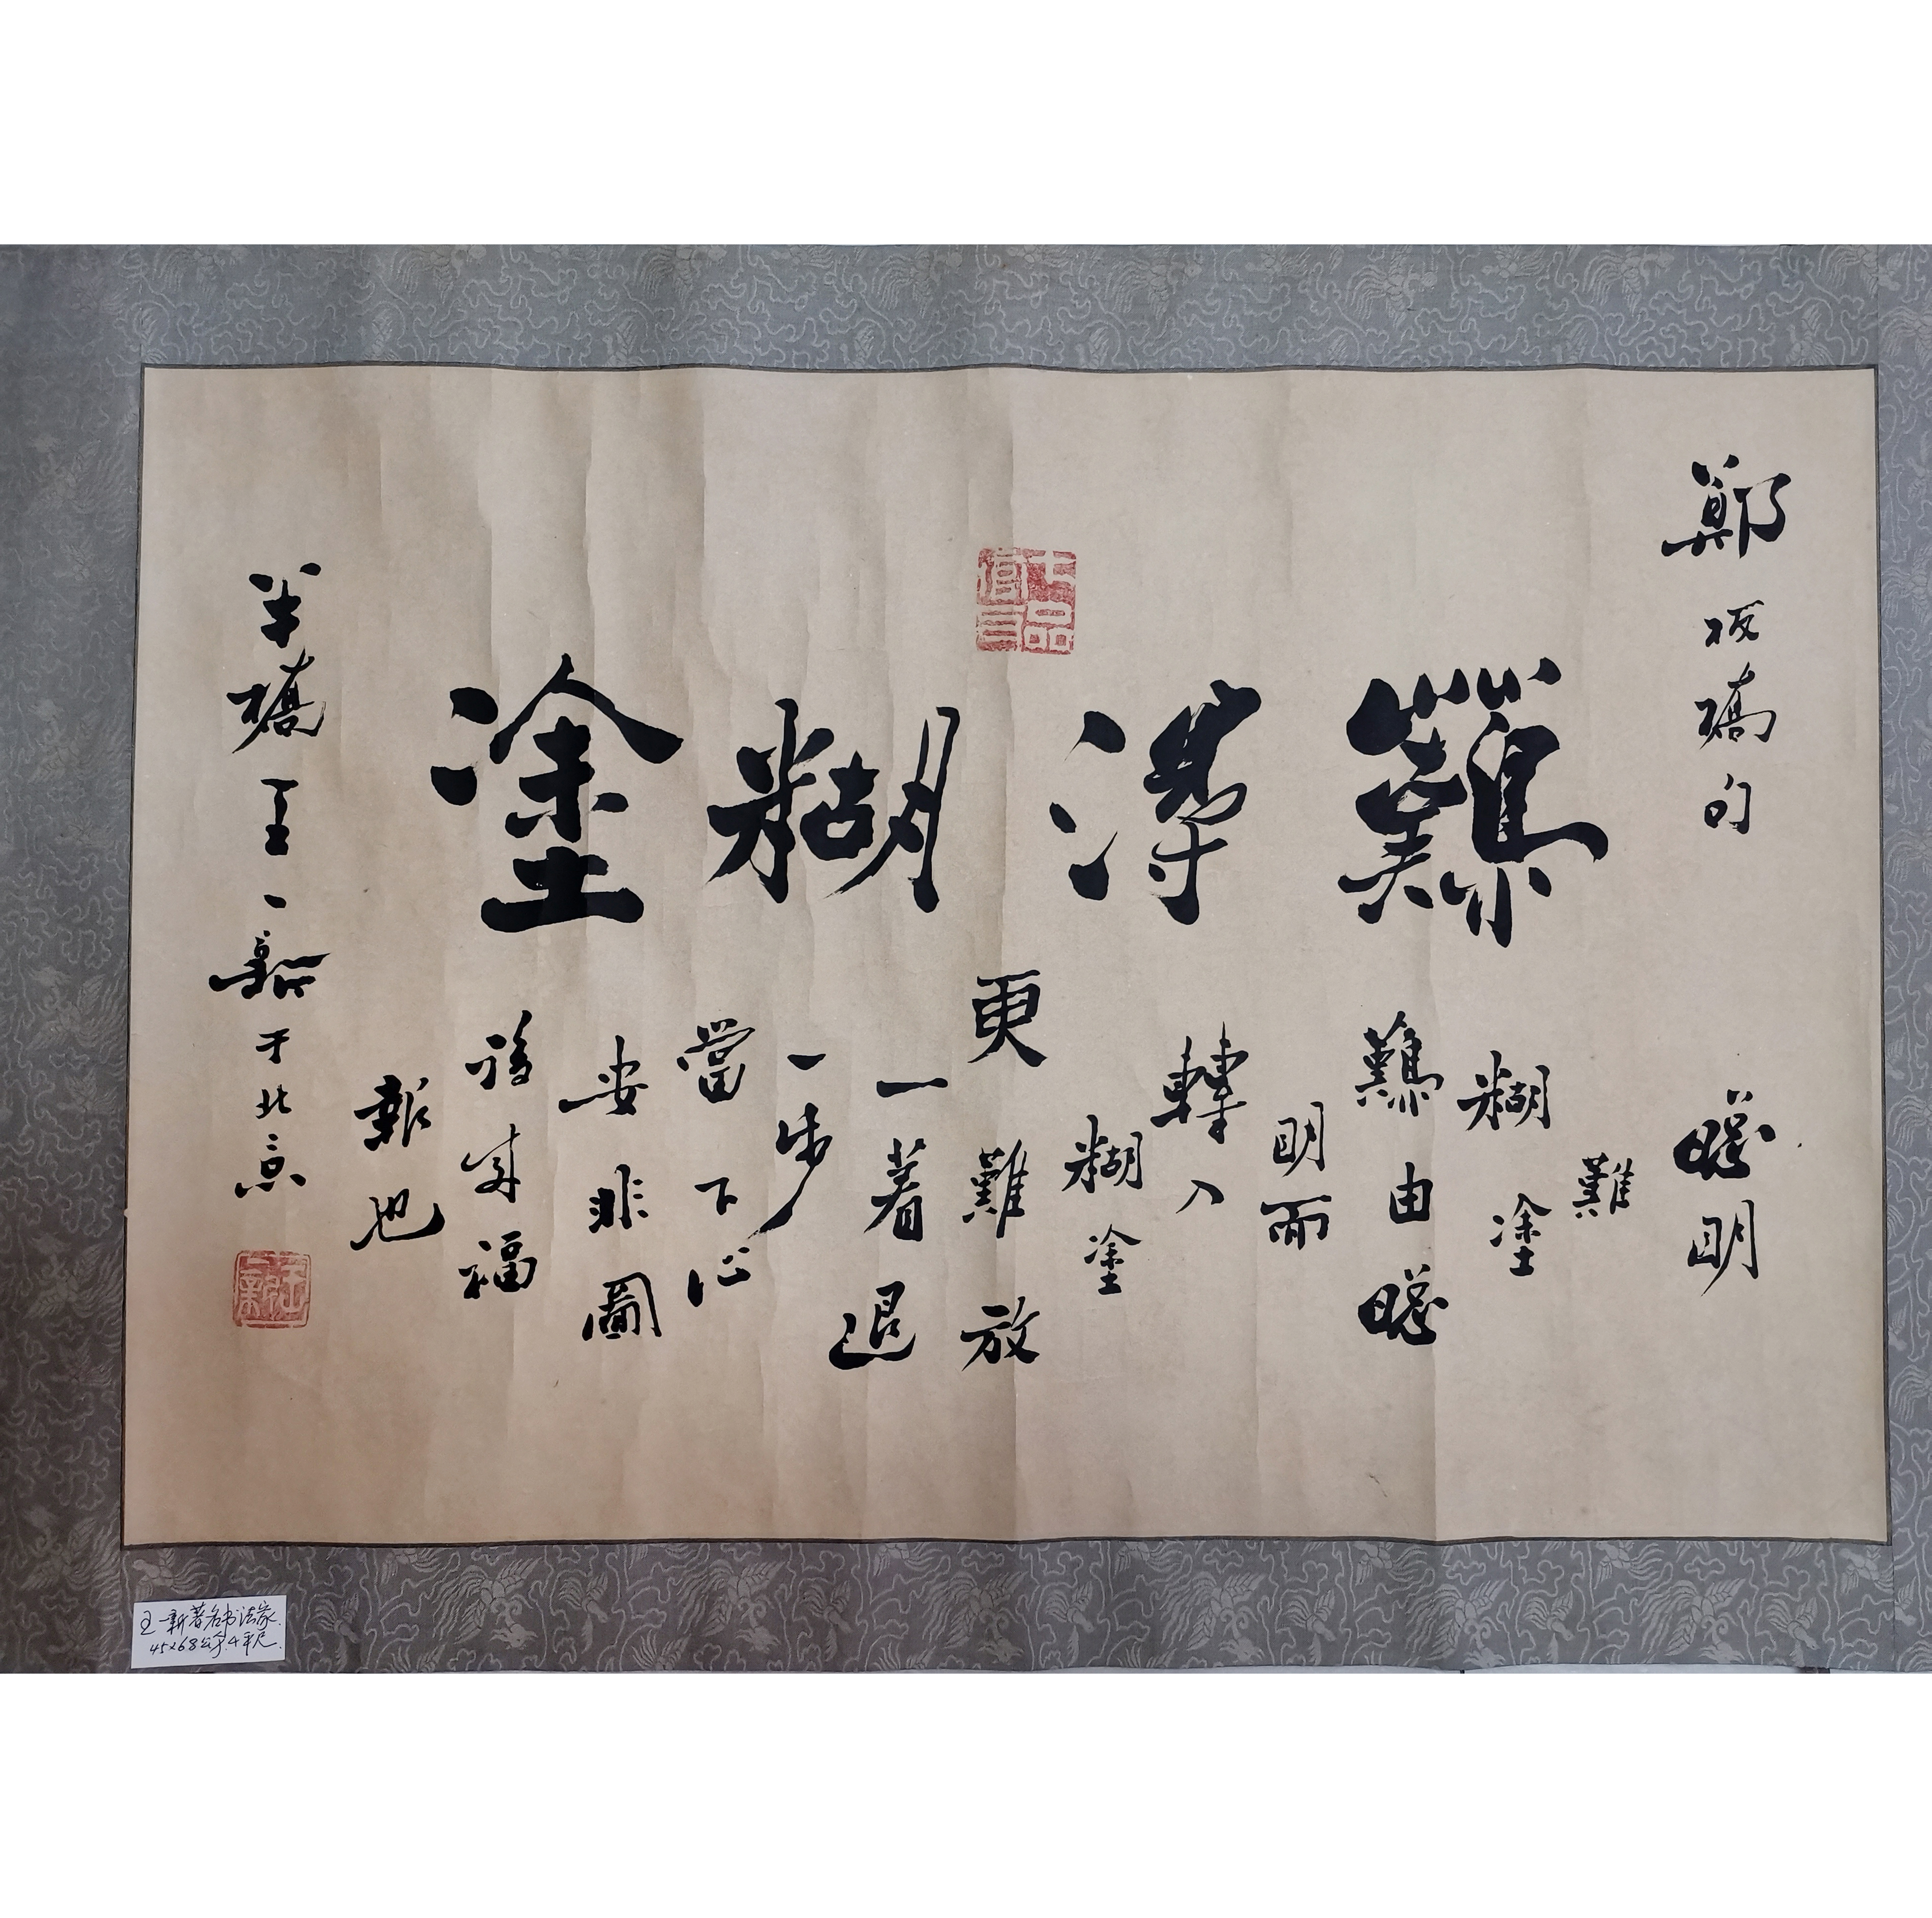 鄭板橋句
難得糊塗
聰明
難
糊塗
難由聰
明而
轉入
糊塗
更難放
一着退
一步
當下心
安非圖
後來福
報也
半橋王一新于北京
王一新著名书法家.
45x68公分.4平尺.